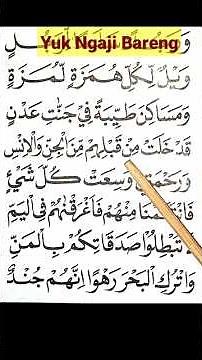 Yuk Ngaji Bareng
وَيْلٌ لِّكُلِّ هُمَزَةٍ لُّمَزَةٍ
وَمَسَاكِنَ طَيِّبَةً فِيْ جَنّٰتِ عَدْنٍ
قَدْ خَلَتْ مِنْ قَبْلِهِمْ مِّنَ الْجِنِّ وَالْاِنْسِ
وَرَحْمَتِيْ وَسِعَتْ كُلَّ شَيْءٍ
فَانْتَقَمْنَا مِنْهُمْ فَاَغْرَقْنٰهُمْ فِى الْيَمِّ
تُبْطِلُوْا صَدَقَاتِكُمْ بِالْمَنِّ
وَاتْرُكِ الْبَحْرَ رَهْوًا اِنَّهُمْ جُنْدٌ